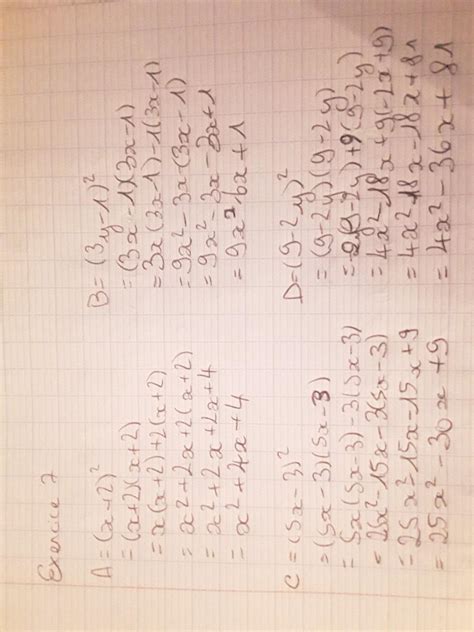 Exercice 7
A = (x+2)²
= (x+2)(x+2)
= x(x+2)+2(x+2)
= x²+2x+2(x+2)
= x²+2x+2x+4
= x²+4x+4
B = (3y-1)²
= (3x-1)(3x-1)
= 3x(3x-1)-1(3x-1)
= 9x²-3x-(3x-1)
= 9x²-3x-3x+1
= 9x²-6x+1
C = (5x-3)²
= (5x-3)(5x-3)
= 5x(5x-3)-3(5x-3)
= 25x²-15x-3(5x-3)
= 25x²-15x-15x+9
= 25x²-30x+9
D = (9-2y)²
= (9-2y)(9-2y)
= 2(9-2y)+9(9-2y)
= 4x²-18x+9(-2x+9)
= 4x²-18x-18x+81
= 4x²-36x+81